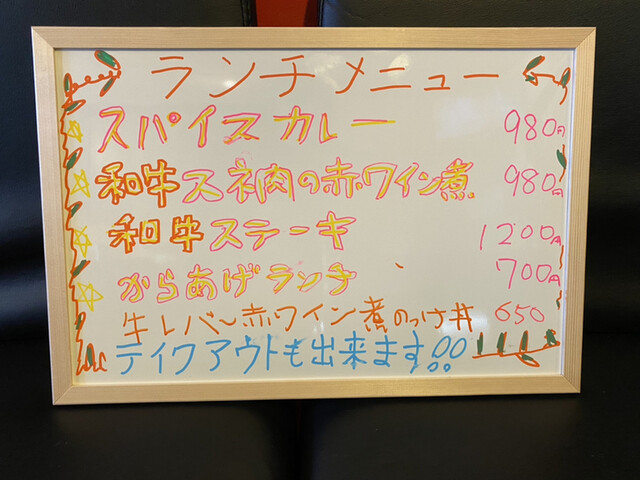 ランチメニュー
スパイスカレー 980円
和牛スネ肉の赤ワイン煮 980円
和牛ステーキ 1200円
からあげランチ 700円
牛レバ～赤ワイン煮のっけ丼 650
テイクアウトも出来ます!!